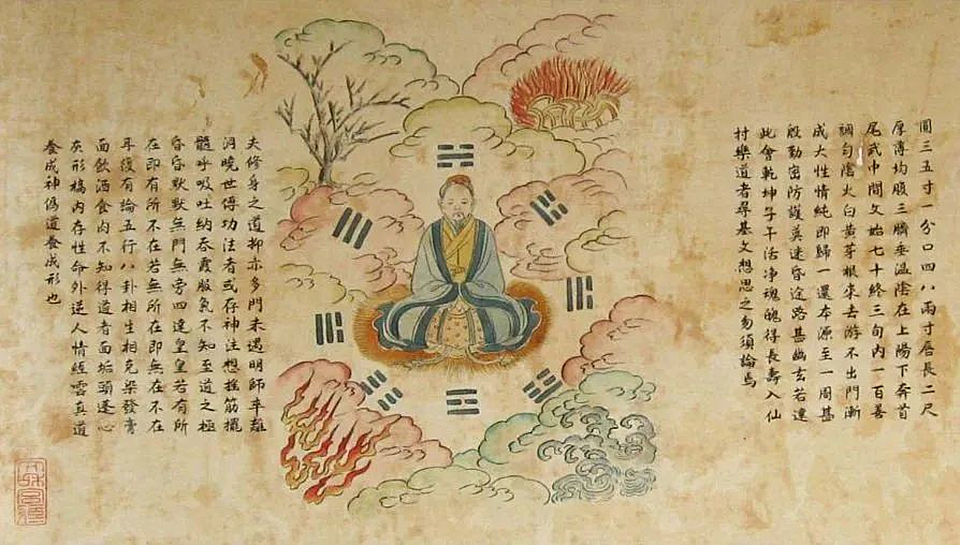 圓三五寸一分口四八兩寸唇長二尺
厚薄均腹三臍垂溫陰在上陽下奔首
尾武中間文始七十終三旬內一百善
調勻陰火白黃芽根來去游不出門漸
成大性情純即歸一還本源至一周甚
殷勤密防護莫迷昏途路甚幽玄若達
此會乾坤子午活净魂魄得長壽入仙
村樂道者尋基文想思之勿須論焉
夫修身之道抑亦多門未遇明師卒難
洞曉世傳功法者或存神注想捻筋擺
髓呼吸吐納吞霞服氣不知至道之極
昏昏默默無門無旁四達皇皇若有所
在即有所不在若無所在即無在不在
耳復有論五行八卦相生相克染發膏
面飲酒食肉不知得道者面垢頭蓬心
灰形槁內存性命外逆人情經雲真道
養成神偽道養成形也